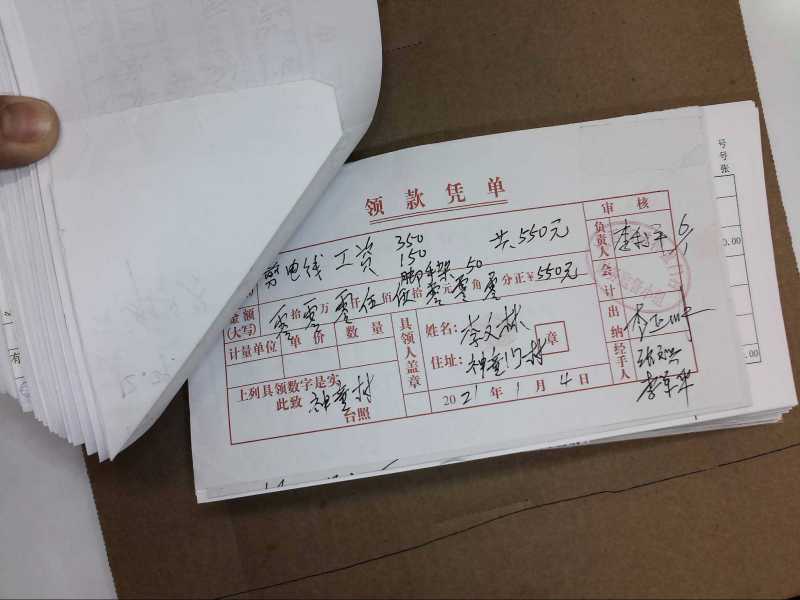 领款凭单
电线工资 350 150 脚手架50 共550元
金额(大写) 零拾零万零仟伍佰伍拾零元零角零分正¥550元
计量单位 单价 数量
上列具领数字是实
此致 神童村 台照
具领人盖章
姓名:李文林
住址:神童门村
章
2021年1月4日
审核
负责人
会计
出纳
经手人
李军华
号
号
张
0.00
.00
有